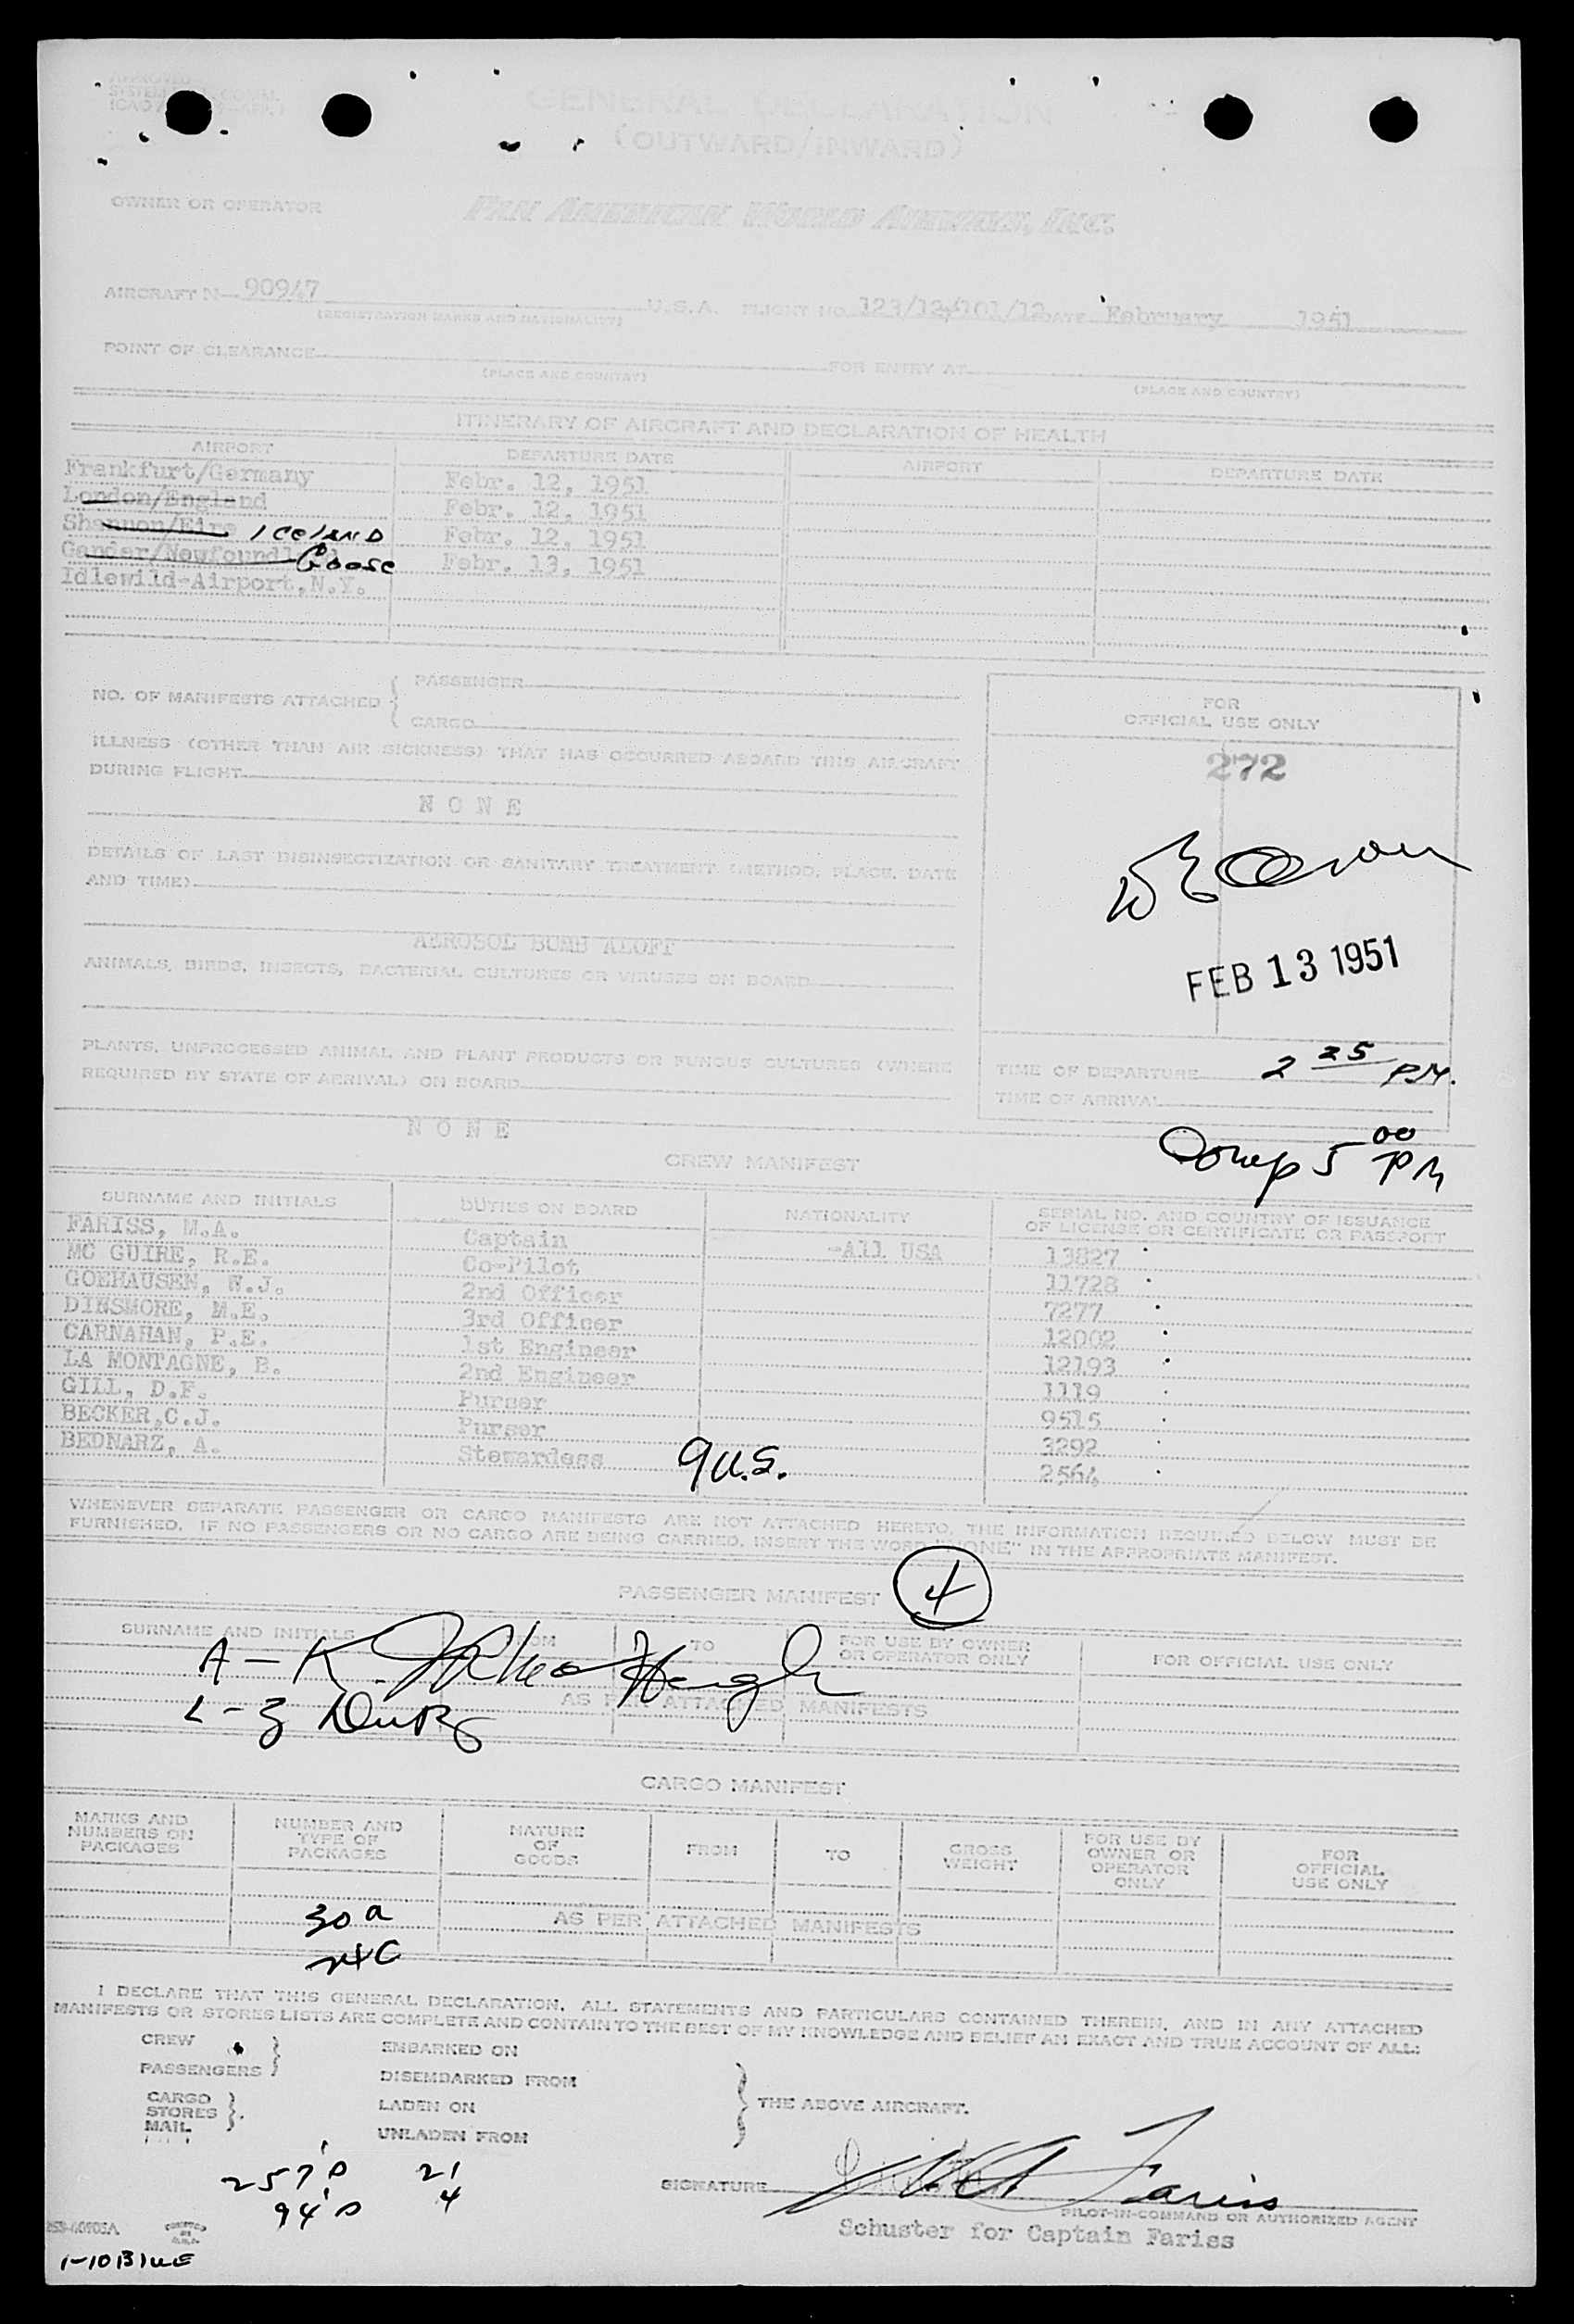 APPROVED
GENERAL DECLARATION
(OUTWARD/INWARD)
OWNER OR OPERATOR PAN AMERICAN WORLD AIRWAYS, INC.
AIRCRAFT N 90947 U.S.A. FLIGHT NO. 123/12, 101/12 DATE February 1951
(REGISTRATION MARKS AND NATIONALITY)
POINT OF CLEARANCE FOR ENTRY AT
(PLACE AND COUNTRY) (PLACE AND COUNTRY)
ITINERARY OF AIRCRAFT AND DECLARATION OF HEALTH
AIRPORT DEPARTURE DATE AIRPORT DEPARTURE DATE
Frankfurt/Germany Febr. 12, 1951
London/England Febr. 12, 1951
Shannon/Eire Iceland Febr. 12, 1951
Gander/Newfoundland Goose Febr. 13, 1951
Idlewild-Airport,N.Y.
NO. OF MANIFESTS ATTACHED { PASSENGER
CARGO
FOR
OFFICIAL USE ONLY
ILLNESS (OTHER THAN AIR SICKNESS) THAT HAS OCCURRED ABOARD THIS AIRCRAFT
DURING FLIGHT
272
N O N E
DETAILS OF LAST DISINSECTIZATION OR SANITARY TREATMENT (METHOD, PLACE, DATE
AND TIME)
AEROSOL BOMB ALOFT
ANIMALS, BIRDS, INSECTS, BACTERIAL CULTURES OR VIRUSES ON BOARD
FEB 13 1951
PLANTS, UNPROCESSED ANIMAL AND PLANT PRODUCTS OR FUNGUS CULTURES (WHERE
REQUIRED BY STATE OF ARRIVAL) ON BOARD
TIME OF DEPARTURE 2 25 PM.
TIME OF ARRIVAL
N O N E
Comp 5 00 PM
CREW MANIFEST
SURNAME AND INITIALS DUTIES ON BOARD NATIONALITY SERIAL NO. AND COUNTRY OF ISSUANCE
OF LICENSE OR CERTIFICATE OR PASSPORT
FARISS, M.A. Captain -All USA 13827
MC GUIRE, R.E. Co-Pilot 11728
GOEHAUSEN, W.J. 2nd Officer 7277
DINSMORE, M.E. 3rd Officer 12002
CARNAHAN, P.E. 1st Engineer 12193
LA MONTAGNE, B. 2nd Engineer 1119
GILL, D.F. Purser 9515
BECKER,C.J. Purser 3292
BEDNARZ, A. Stewardess 2564
9 U.S.
WHENEVER SEPARATE PASSENGER OR CARGO MANIFESTS ARE NOT ATTACHED HERETO, THE INFORMATION REQUIRED BELOW MUST BE
FURNISHED. IF NO PASSENGERS OR NO CARGO ARE BEING CARRIED, INSERT THE WORD "NONE" IN THE APPROPRIATE MANIFEST.
PASSENGER MANIFEST 4
SURNAME AND INITIALS FROM TO FOR USE BY OWNER
OR OPERATOR ONLY FOR OFFICIAL USE ONLY
A - K
AS PER ATTACHED MANIFESTS
L - Z
CARGO MANIFEST
MARKS AND
NUMBERS ON
PACKAGES
NUMBER AND
TYPE OF
PACKAGES
NATURE
OF
GOODS
FROM
TO
GROSS
WEIGHT
FOR USE BY
OWNER OR
OPERATOR
ONLY
FOR
OFFICIAL
USE ONLY
30 a
AS PER ATTACHED MANIFESTS
I DECLARE THAT THIS GENERAL DECLARATION, ALL STATEMENTS AND PARTICULARS CONTAINED THEREIN, AND IN ANY ATTACHED
MANIFESTS OR STORES LISTS ARE COMPLETE AND CONTAIN TO THE BEST OF MY KNOWLEDGE AND BELIEF AN EXACT AND TRUE ACCOUNT OF ALL:
CREW
PASSENGERS
CARGO
STORES
MAIL
EMBARKED ON
DISEMBARKED FROM
LADEN ON
UNLADEN FROM
THE ABOVE AIRCRAFT.
257 21
94 4
SIGNATURE M A Fariss
PILOT-IN-COMMAND OR AUTHORIZED AGENT
Schuster for Captain Fariss